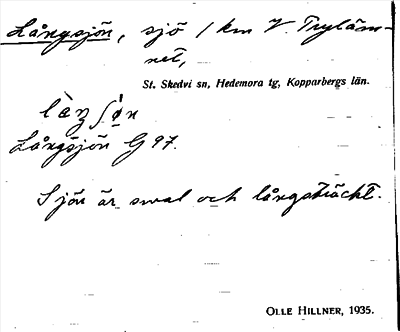 Långsjön, sjö 1 km V. Tryläm-
net,
St. Skedvi sn, Hedemora tg, Kopparbergs län.
Långsjön G 97.
Sjön är smal och långsträckt.
OLLE HILLNER, 1935.